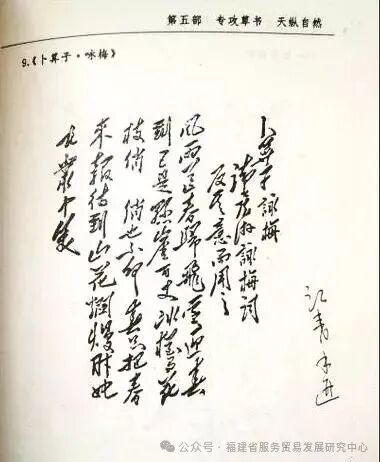 第五部 专攻草书 天纵自然
9.《卜算子·咏梅》
江青手迹
卜算子 詠梅
读陸游詠梅词
反其意而用之
风雨送春歸 飛雪迎春
到 已是懸崖百丈冰 犹有花
枝俏 俏也不争春 只把春
来报 待到山花爛熳时 她
在叢中笑
公众号·福建省服务贸易发展研究中心